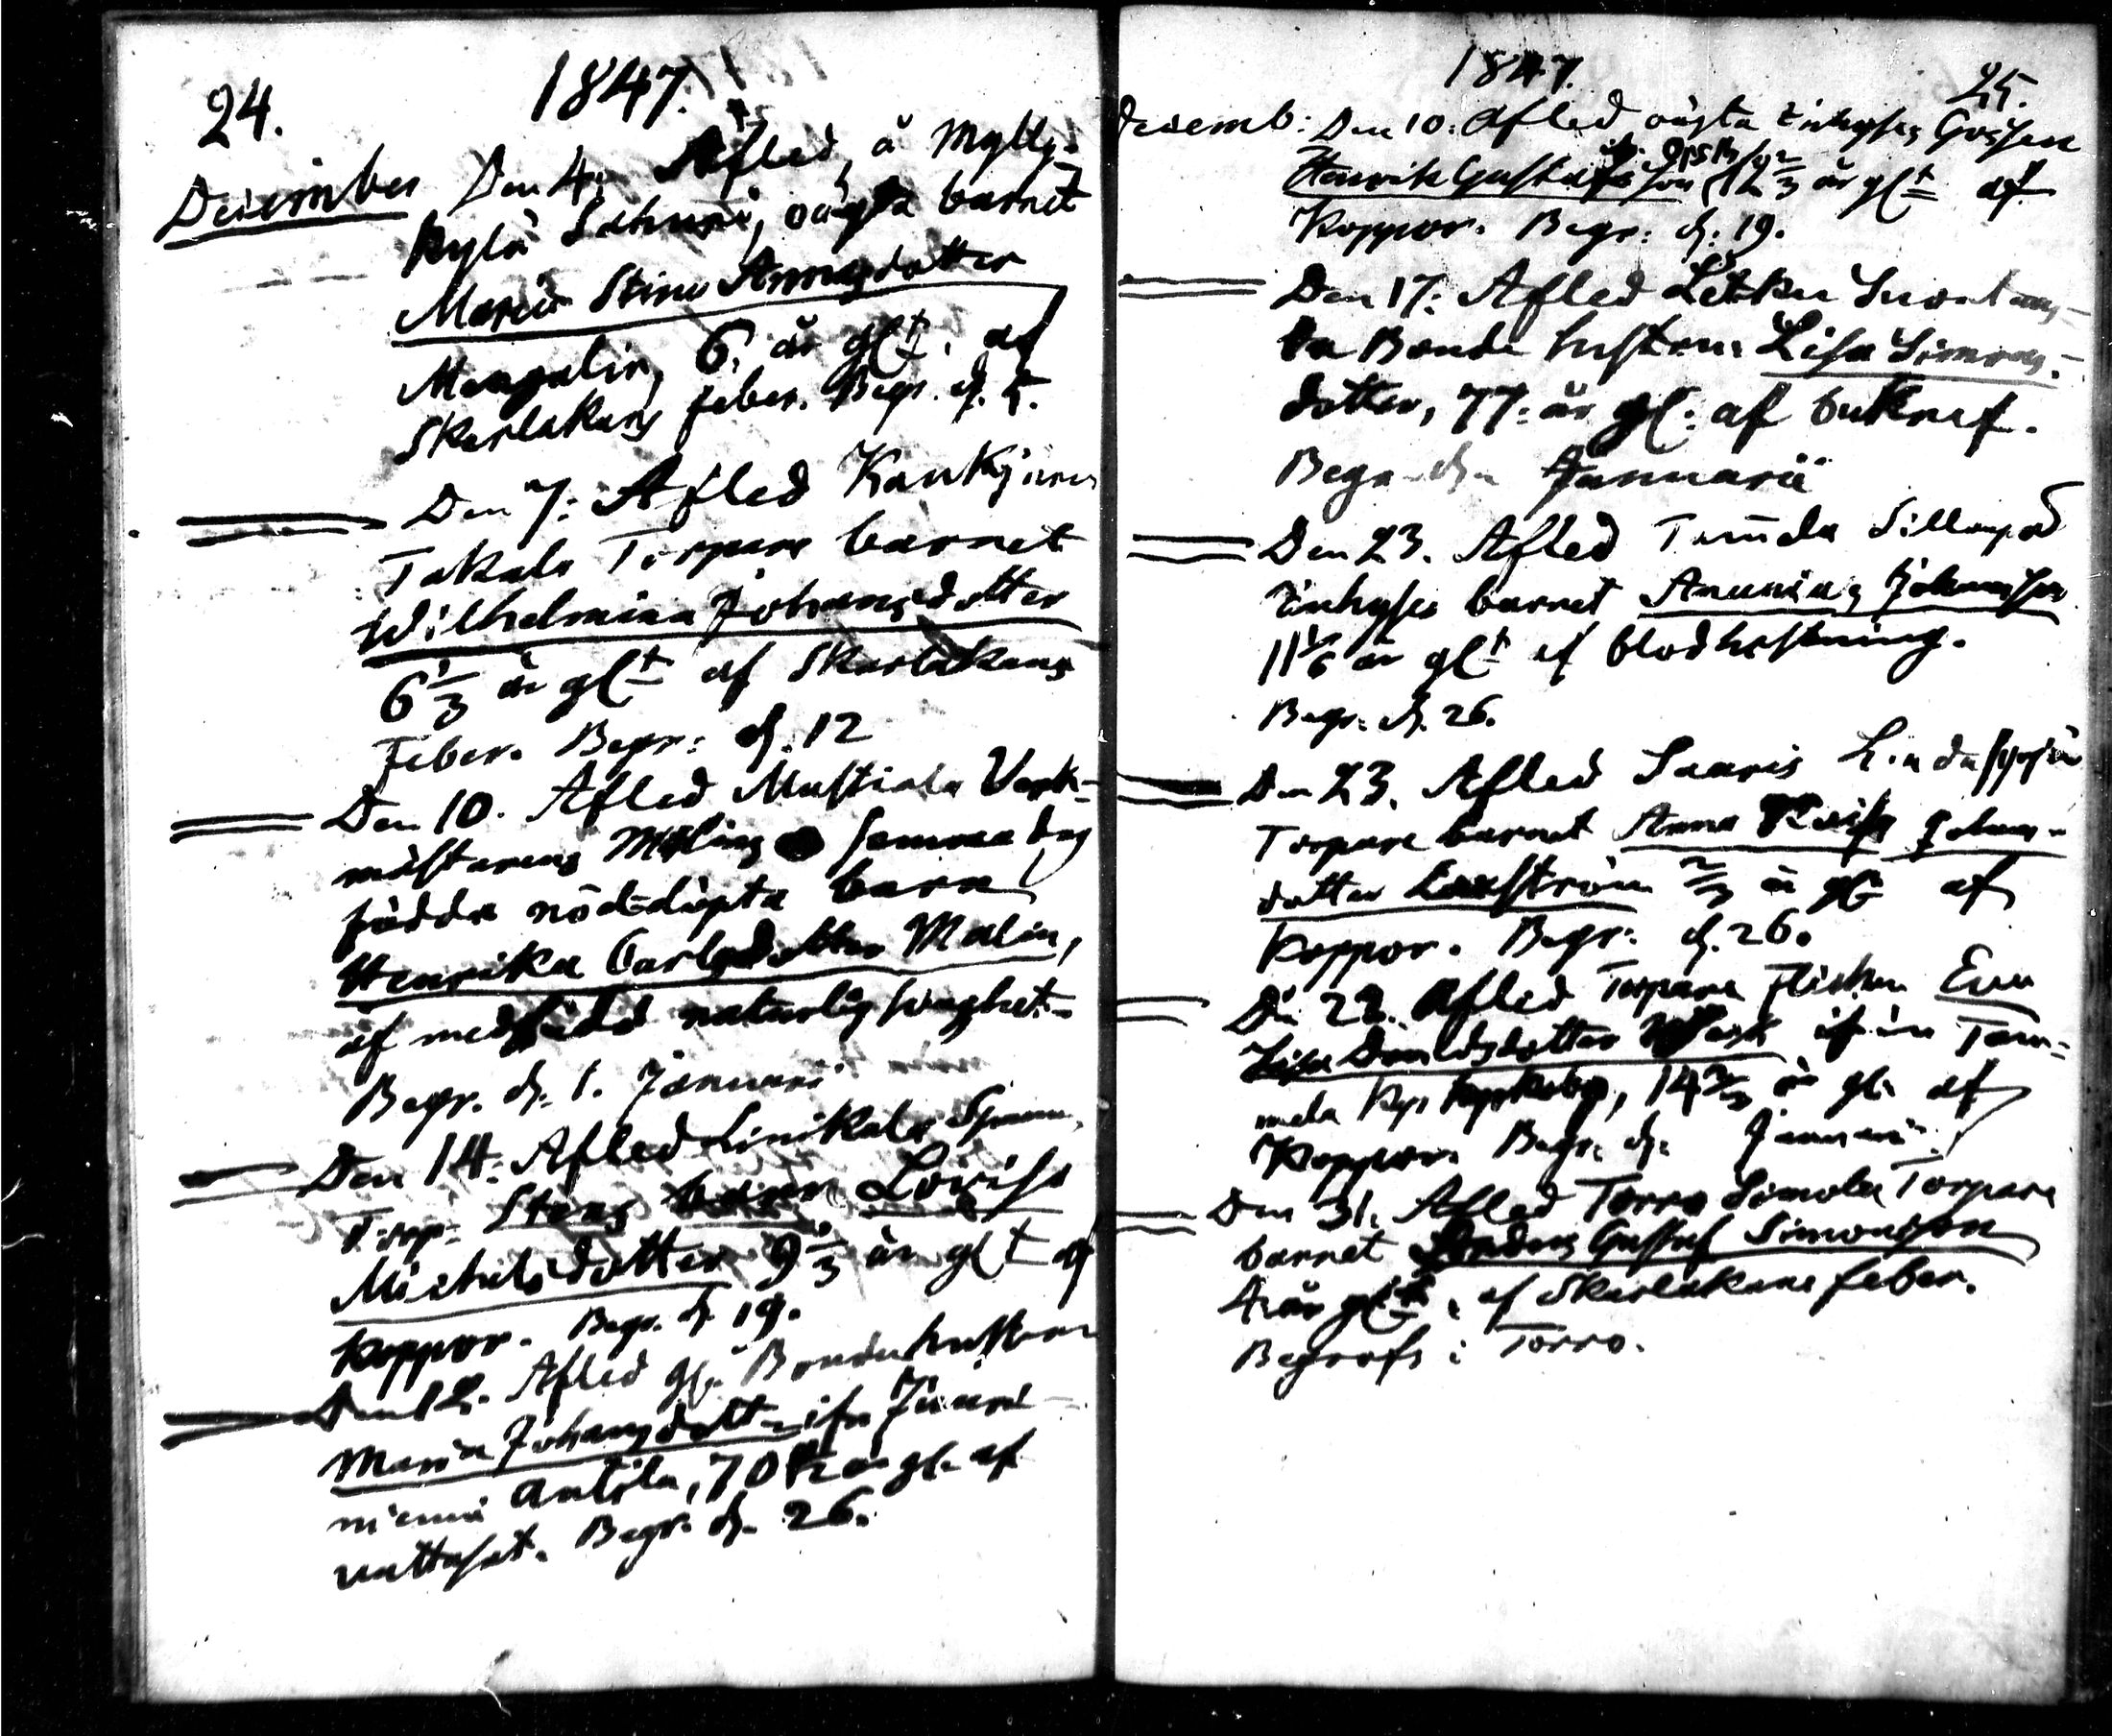 24.
1847.
December Den 4: Afled, å Mylly-
kylä Sahuri, oägta barnet
Maria Stina Annasdotter
6, år glt. af
Skarlakans feber. Begr. d. 5.
Den 7: Afled Kaukjärvi
Takala Torpare barnet
Wilhelmina Johansdotter
6 1/3 år glt af Skarlakans
Feber. Begr: d. 12
Den 10. Afled Mustiala Verk-
mästarens Malins samma dag
födda nöd-döpta barn
Henrika Carlsdotter Malin,
af medfödd naturlig svaghet.
Begr. d. 1. Januari
Den 14. Afled
Torp. Stens barn Lovisa
Michelsdotter 9 1/3 år glt af
Koppor. Begr. d. 19.
Den 12. Afled gl. Bondehustrun
Maria Johansdott. ifr. Jäni-
niemi Antila, 70 år gl. af
vattusot. Begr. d. 26.
1847.
25.
Decemb: Den 10: Afled oägta Inhyses Gossen
Henrik Gustafsson 12 2/3 år glt af
Koppor. Begr: d. 19.
Den 17: Afled Letku
Bonde hustrun Lisa Simons-
dotter, 77: år gl: af bukref.
Begr. d. Januarii
Den 23. Afled Tamela Sillanpää
Inhyses barnet Ananias Johansson
11 1/6 år glt af blodhostning.
Begr. d. 26.
Den 23. Afled Saaris
Torpare barnet Anna Johans-
dotter 2/3 år gl. af
Koppor. Begr: d. 26.
Den 22. Afled Torpare Flickan Eva
Lisa Davidsdotter ifrån Tam-
mela 14 2/3 år gl. af
Koppor. Begr. d. Januari.
Den 31. Afled Torro Simola Torpare
barnet Anders Gustaf Simonsson
4 år glt, af Skarlakans feber.
Begrofs i Torro.